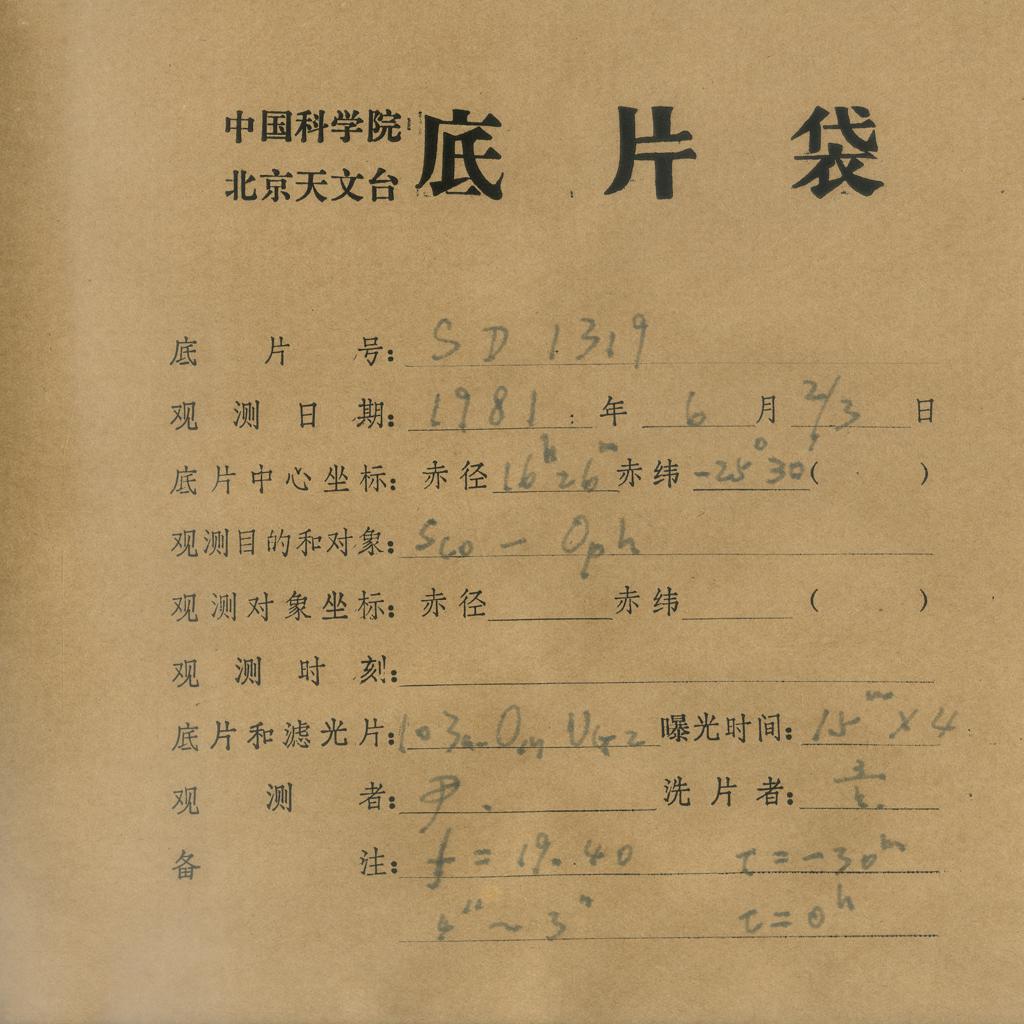 中国科学院
北京天文台
底片袋
底片号: SD 1319
观测日期: 1981 年 6 月 2/3 日
底片中心坐标: 赤径 16h26m 赤纬 -25°30′ ( )
观测目的和对象: Sco - Oph
观测对象坐标: 赤径 赤纬 ( )
观测时刻:
底片和滤光片: 103a-O UG2 曝光时间: 15m×4
观测者: 尹. 洗片者:
备注: f = 19.40 τ = -30m
4″~3″ τ = 0h